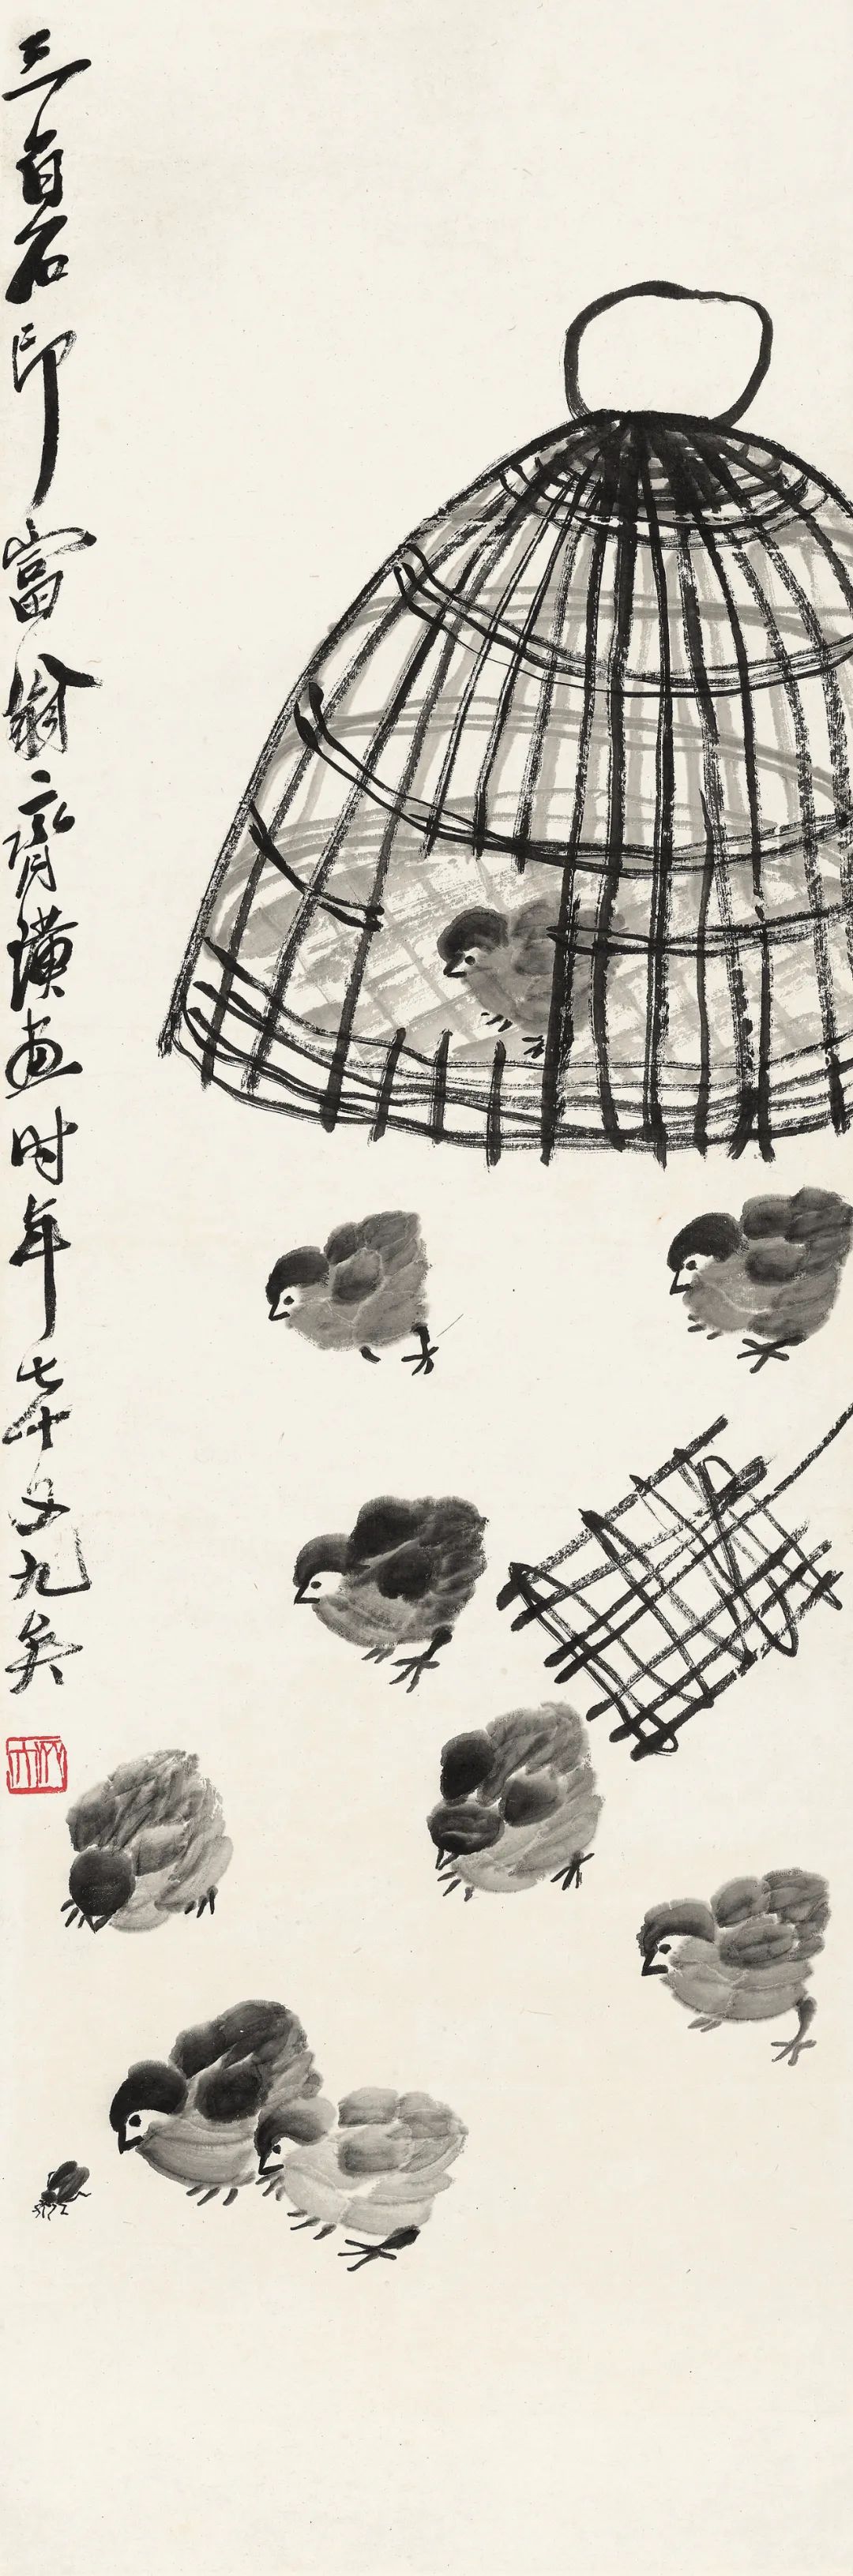 三百石印富翁齊璜画时年七十又九矣